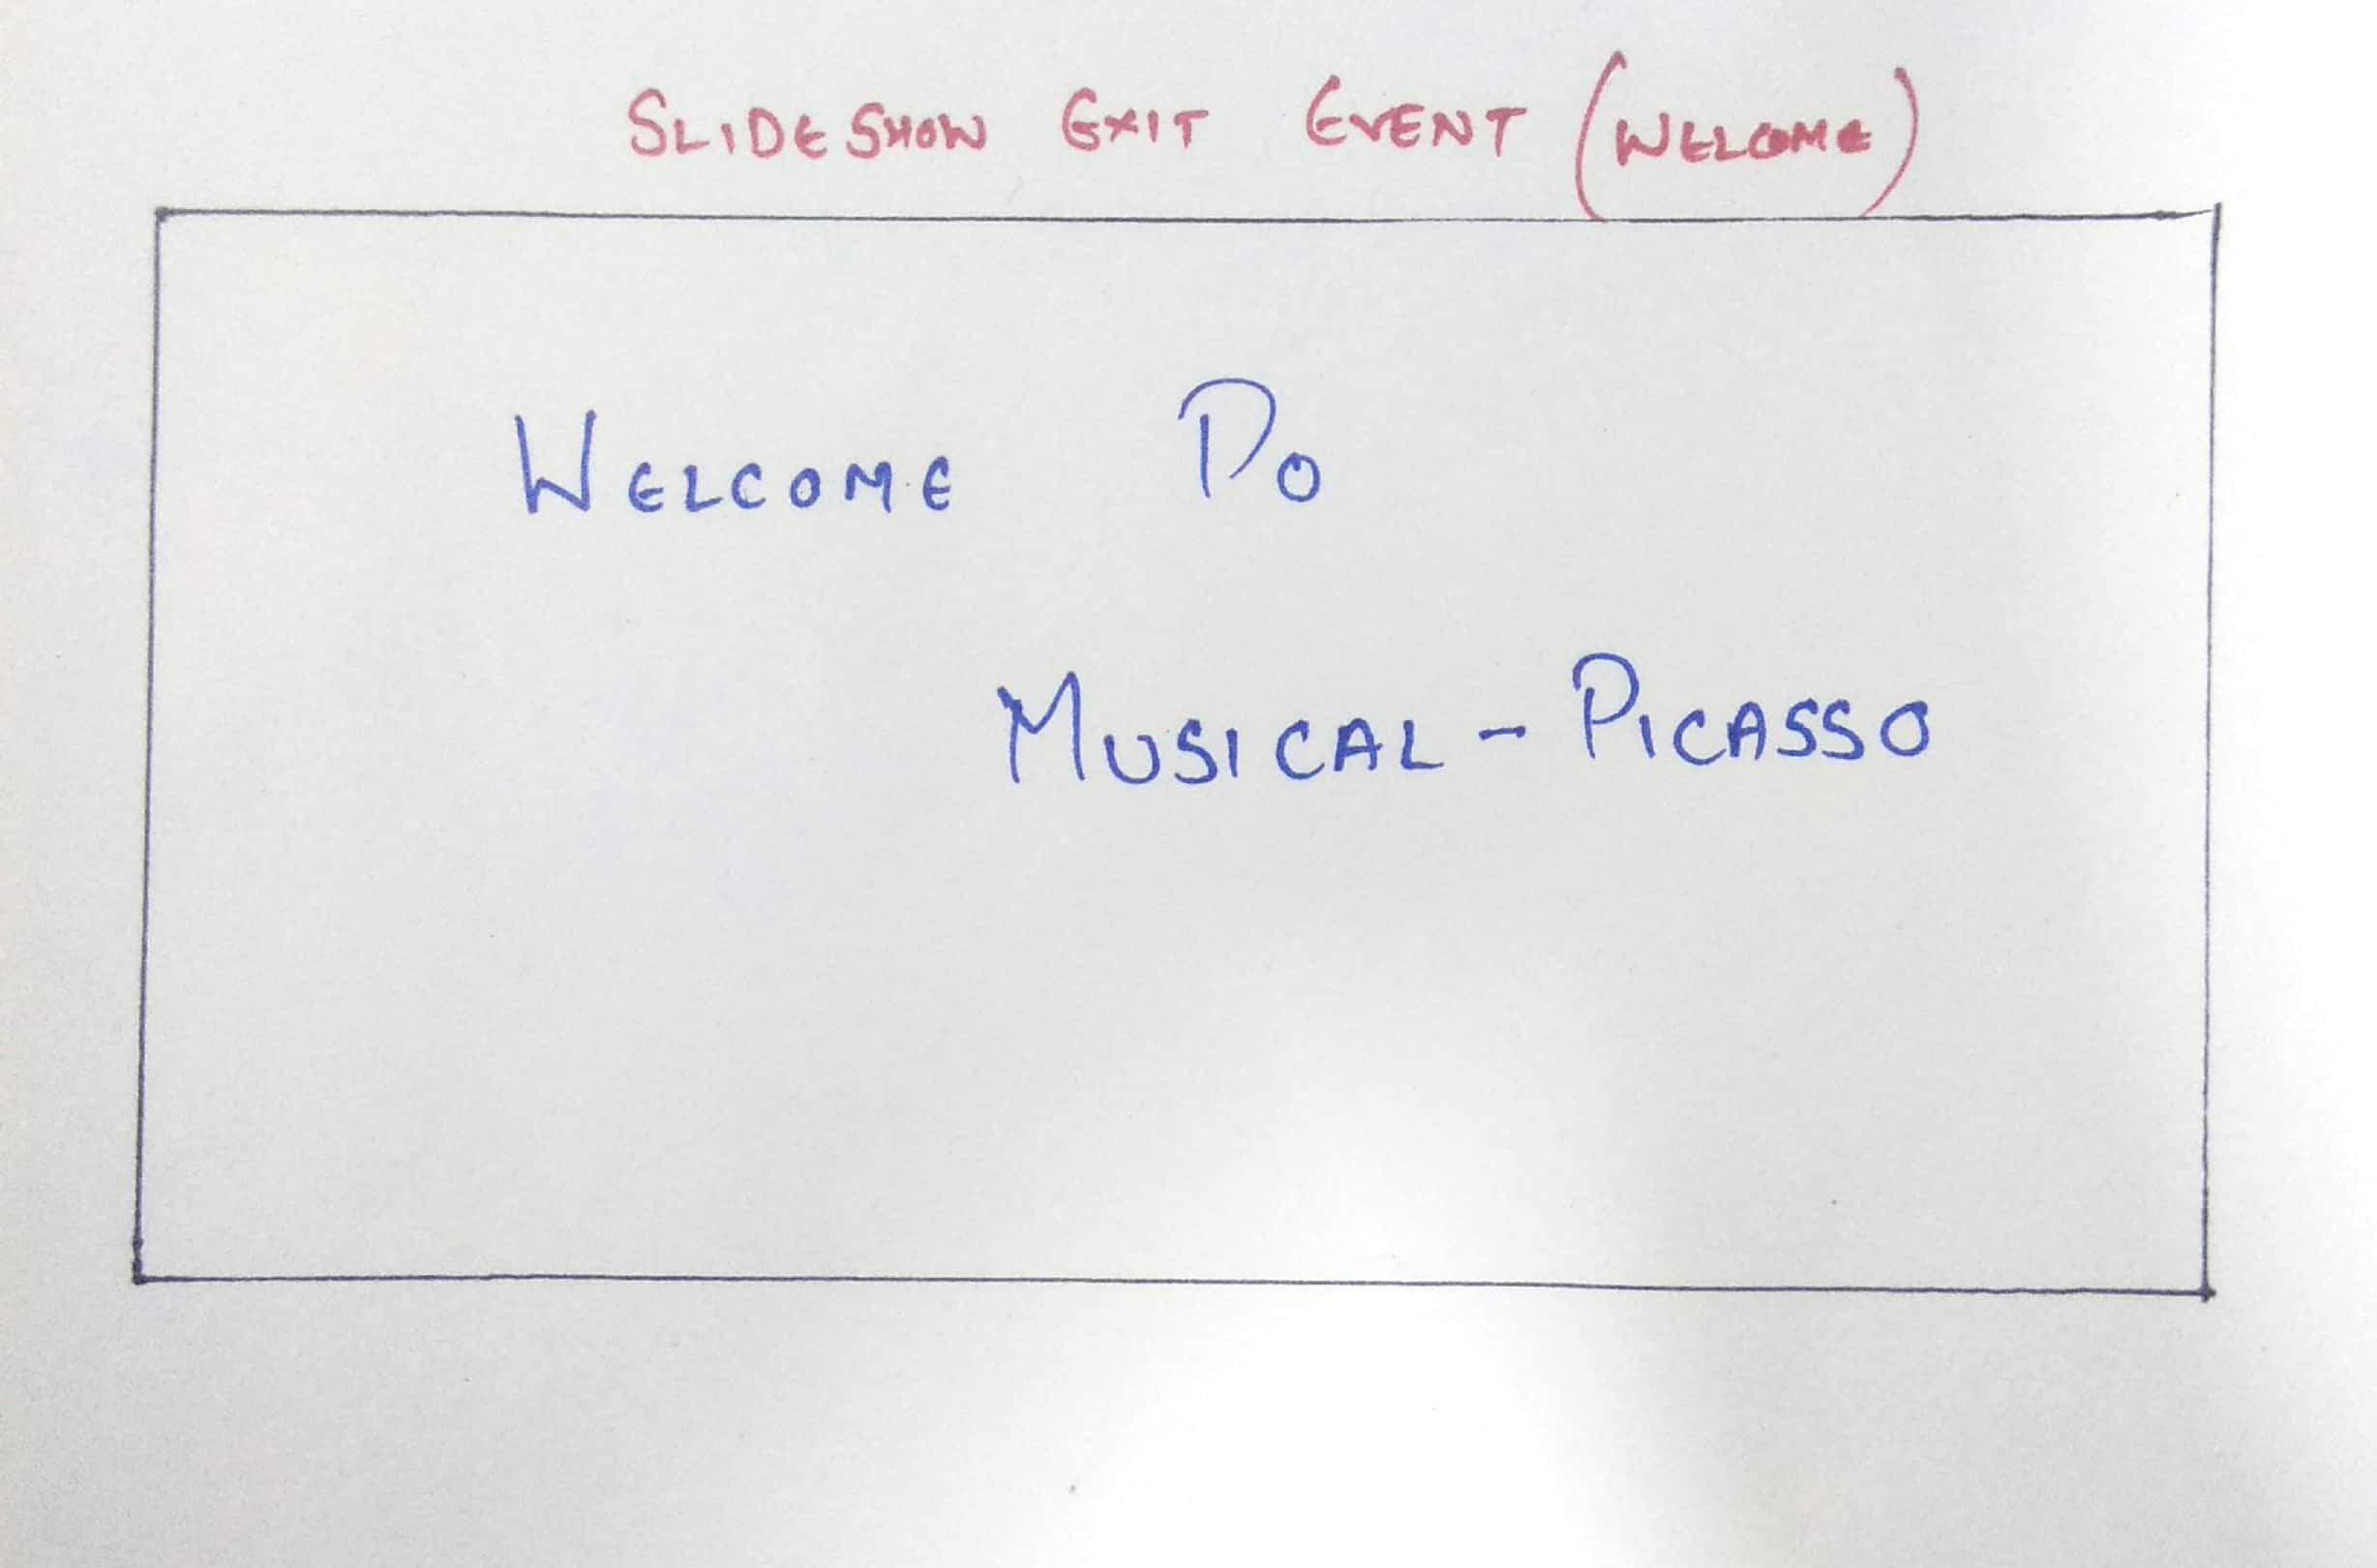 SLIDESHOW EXIT EVENT (WELCOME)
WELCOME DO
MUSICAL-PICASSO